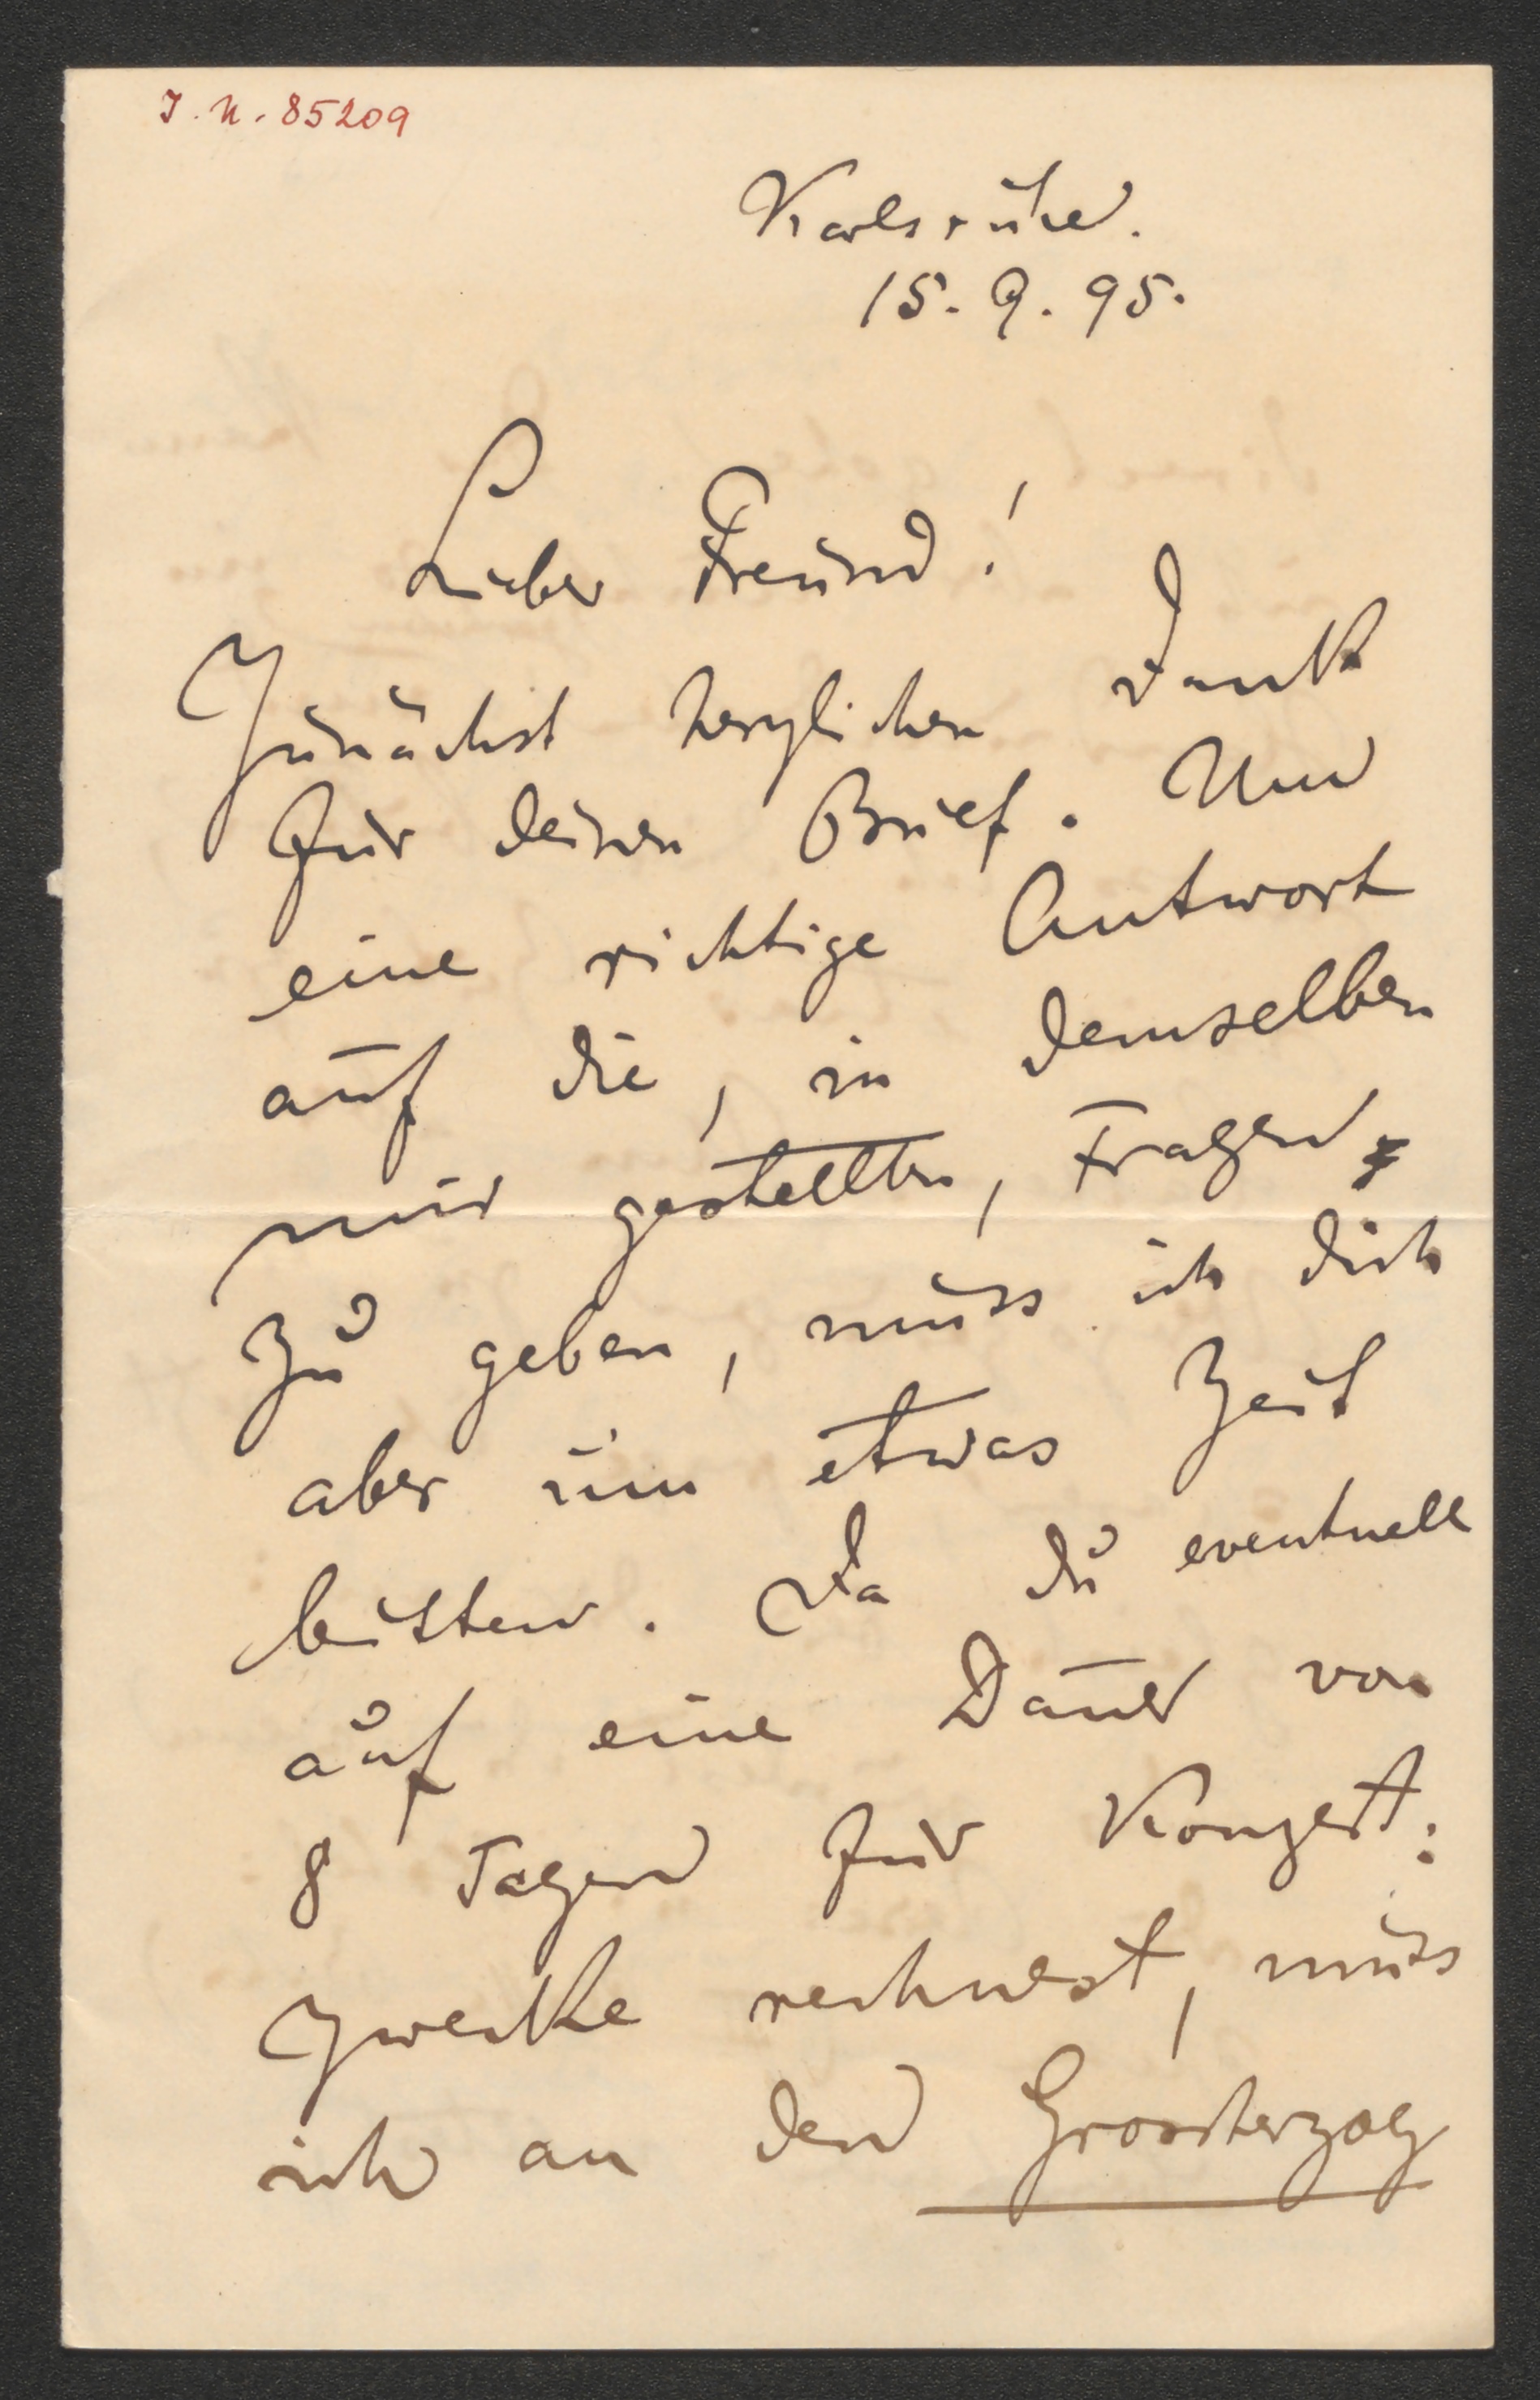 I. N. 85209
Karlsruhe.
15. 9. 95.
Lieber Freund!
Zunächst herzlichen Dank
für deinen Brief. Um
eine richtige Antwort
auf die, in demselben
mir gestellten, Fragen
zu geben, muss ich dich
aber um etwas Zeit
bitten. Da du eventuell
auf eine Dauer von
8 Tagen für Konzert:
zwecke rechnest, muss
ich an den Grossherzog